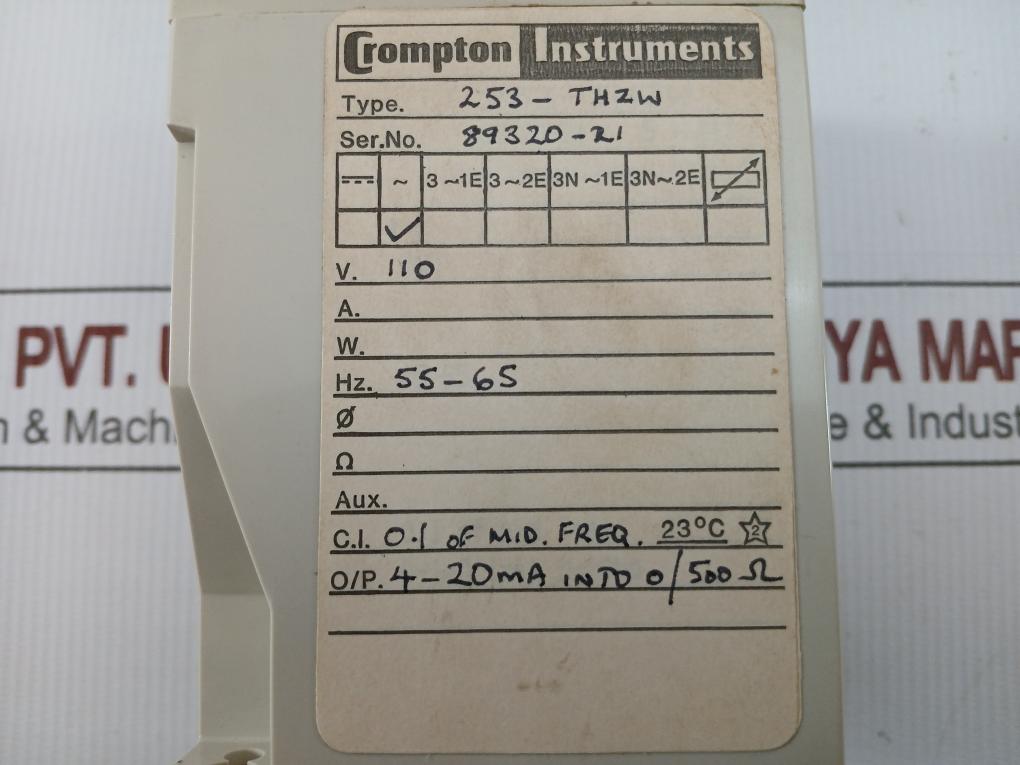 Crompton Instruments
Type. 253-THZW
Ser.No. 89320-21
~ 3~1E 3~2E 3N~1E 3N~2E
✓
V. 110
A.
W.
Hz. 55-65
Ø
Ω
Aux.
C.I. 0.1 OF MID. FREQ. 23°C 2
O/P. 4-20mA INTO 0/500 Ω
PVT.
YA MAR
& Mach
e & Indust